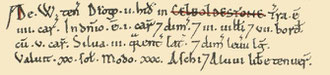 De. W. ten& Drogo. 11. hid in CELBOLDESTONE. Tra. ē
1111. car̃. In dn̄io. ē. 1. car̃ 7 dim̃. 7 111. uilli 7 v11. bord̃
cū. v. car̃. Silua. 111. quent̃ lat̃. 7 dim̃ leuu lg̃.
Valuit. xx. sol̃. Modo. xxx. Aschi 7 Aluui libe tenuer̃.